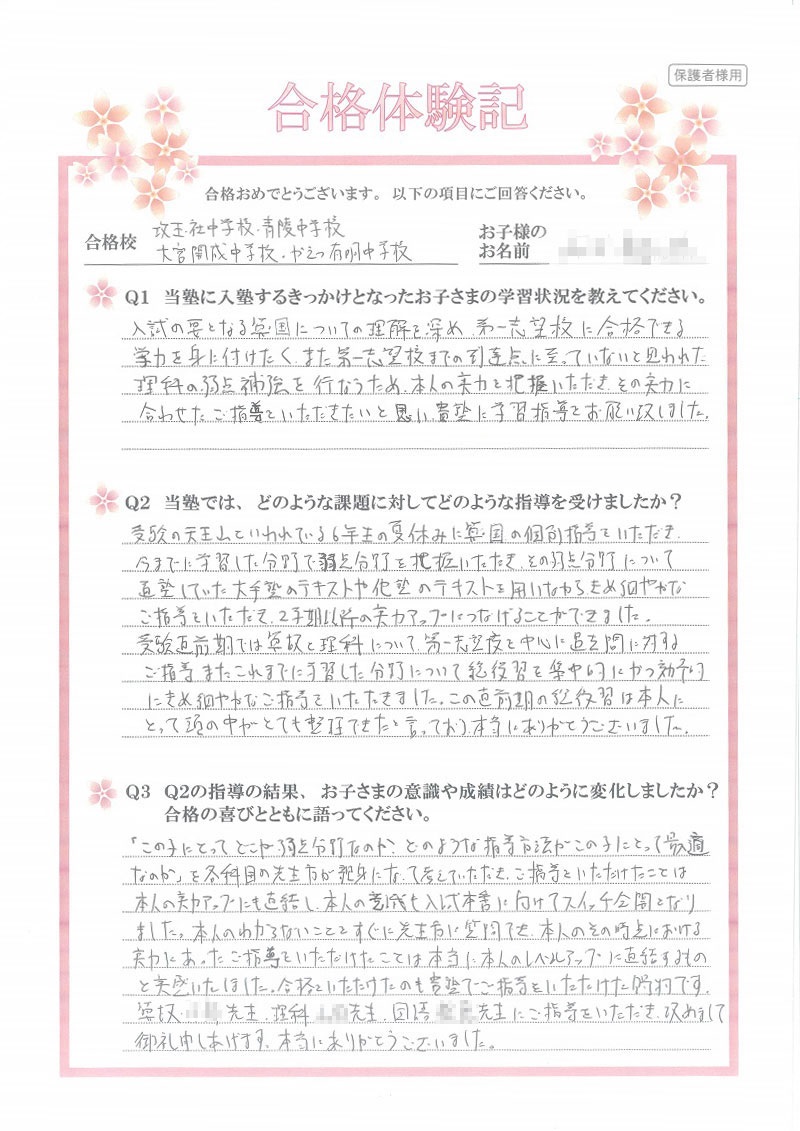 保護者様用
合格体験記
合格おめでとうございます。以下の項目にご回答ください。
合格校 攻玉社中学校・青陵中学校
大宮開成中学校・かえつ有明中学校
お子様の
お名前
Q1 当塾に入塾するきっかけとなったお子さまの学習状況を教えてください。
入試の要となる算国についての理解を深め、第一志望校に合格できる
学力を身に付けたく、また第一志望校までの到達点に至っていないと思われた
理科の弱点補強を行なうため、本人の実力を把握いただき、その実力に
合わせたご指導をいただきたいと思い、貴塾に学習指導をお願い致しました。
Q2 当塾では、どのような課題に対してどのような指導を受けましたか？
受験の天王山といわれている6年生の夏休みに算国の個別指導をいただき、
今までに学習した分野で弱点分野を把握いただき、その弱点分野について
通塾していた大手塾のテキストや他塾のテキストを用いながら、きめ細やかな
ご指導をいただき、2学期以降の実力アップにつなげることができました。
受験直前期では算数と理科について、第一志望校を中心に過去問に対する
ご指導、またこれまでに学習した分野について総復習を集中的にかつ効率的
にきめ細やかなご指導をいただきました。この直前期の総復習は本人に
とって頭の中がとても整理できたと言っており、本当にありがとうございました。
Q3 Q2の指導の結果、お子さまの意識や成績はどのように変化しましたか？
合格の喜びとともに語ってください。
「この子にとってどこが弱点分野なのか、どのような指導方法がこの子にとって最適
なのか」を各科目の先生方が親身になって考えていただき、ご指導をいただけたことは
本人の実力アップにも直結し、本人の意識も入試本番に向けてスイッチ全開となり
ました。本人のわからないことをすぐに先生方に質問でき、本人のその時点における
実力にあったご指導をいただけたことは本当に本人のレベルアップに直結するもの
と実感いたしました。合格をいただけたのも貴塾でご指導をいただけた賜物です。
算数・先生、理科 先生、国語 先生にご指導をいただき、改めまして
御礼申しあげます。本当にありがとうございました。